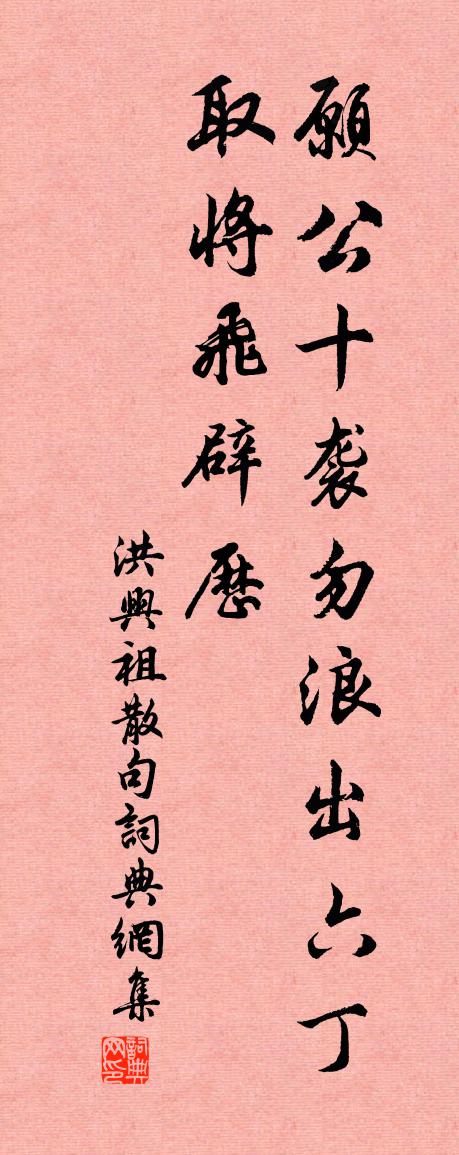 願公十袭勿浪出六丁
取將飛辟歷
洪興祖散句詞典網集
詞典网印